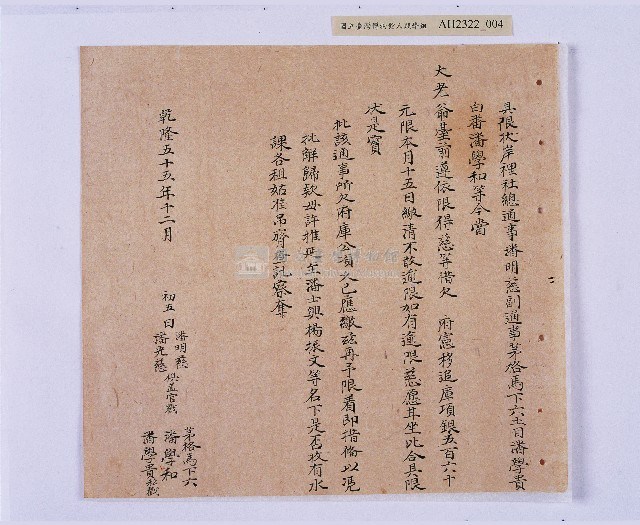 AH2322_004
具限状岸裡社總通事潘明慈副通事茅格馬下六土目潘學貴
白番潘學和等今當
大老爺臺前遵依限得慈等借欠 府憲移追庫項銀五百六十
元限本月十五日繳清不敢逾限如有逾限慈愿甘坐此合具限
状是實
批該通事所欠府庫公項久已應繳玆再予限看即措俻以凴
批解歸款毋許推延至潘士興楊振文等名下是否攻有水
課各租姑准吊齊 察奪
乾隆五十五年十二月 初五日
潘明慈
潘光慈
茅格馬下六
潘學和
潘學貴